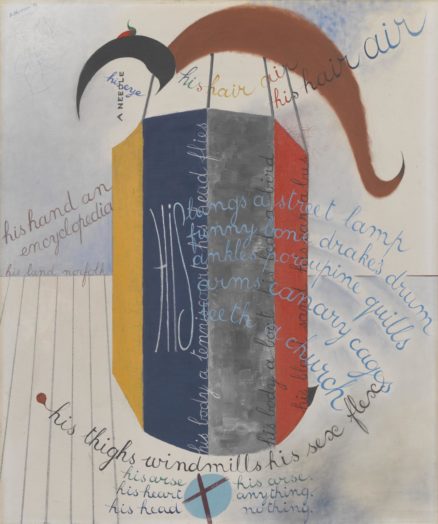 his hair air
his hair air
his eye
A NEEDLE
his hand an
encyclopedia
his land norfolk
HIS
lungs a street lamp
funny bone drake's drum
ankles porcupine quills
arms canary cages
teeth a church
his body a tennis court his head flies
his body a boot his bird
his blood sand his a bus
his thighs windmills his sex flex
his arse his arse.
his heart anything.
his head nothing.